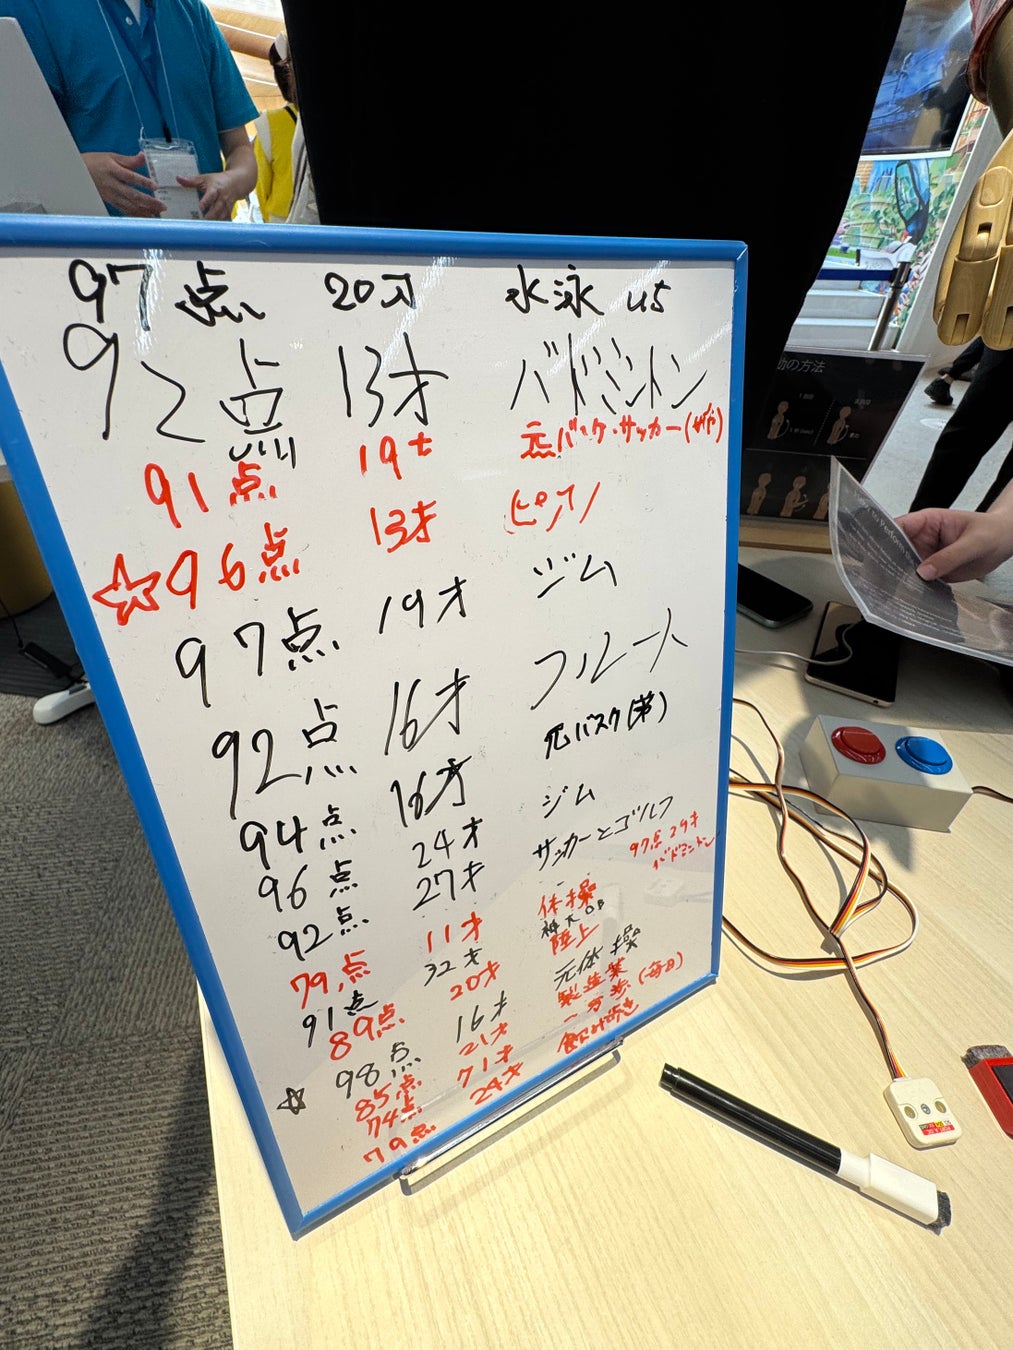 97点 20才 水泳
92点 13才 バドミントン
91点 19才 元バスケ・サッカー
☆96点 13才 ピアノ
97点 19才 ジム
92点 16才 フルート
94点 16才 元バスケ(弟)
96点 24才 ジム
92点 27才 サッカーとゴルフ
97点 29才
バドミントン
79点 11才 体操
91点 32才 神大OB
89点 20才 陸上
☆98点 16才 元体操
85点 21才 製造業
74点 71才 一万歩(毎日)
79点 24才 飲み歩き
の方法